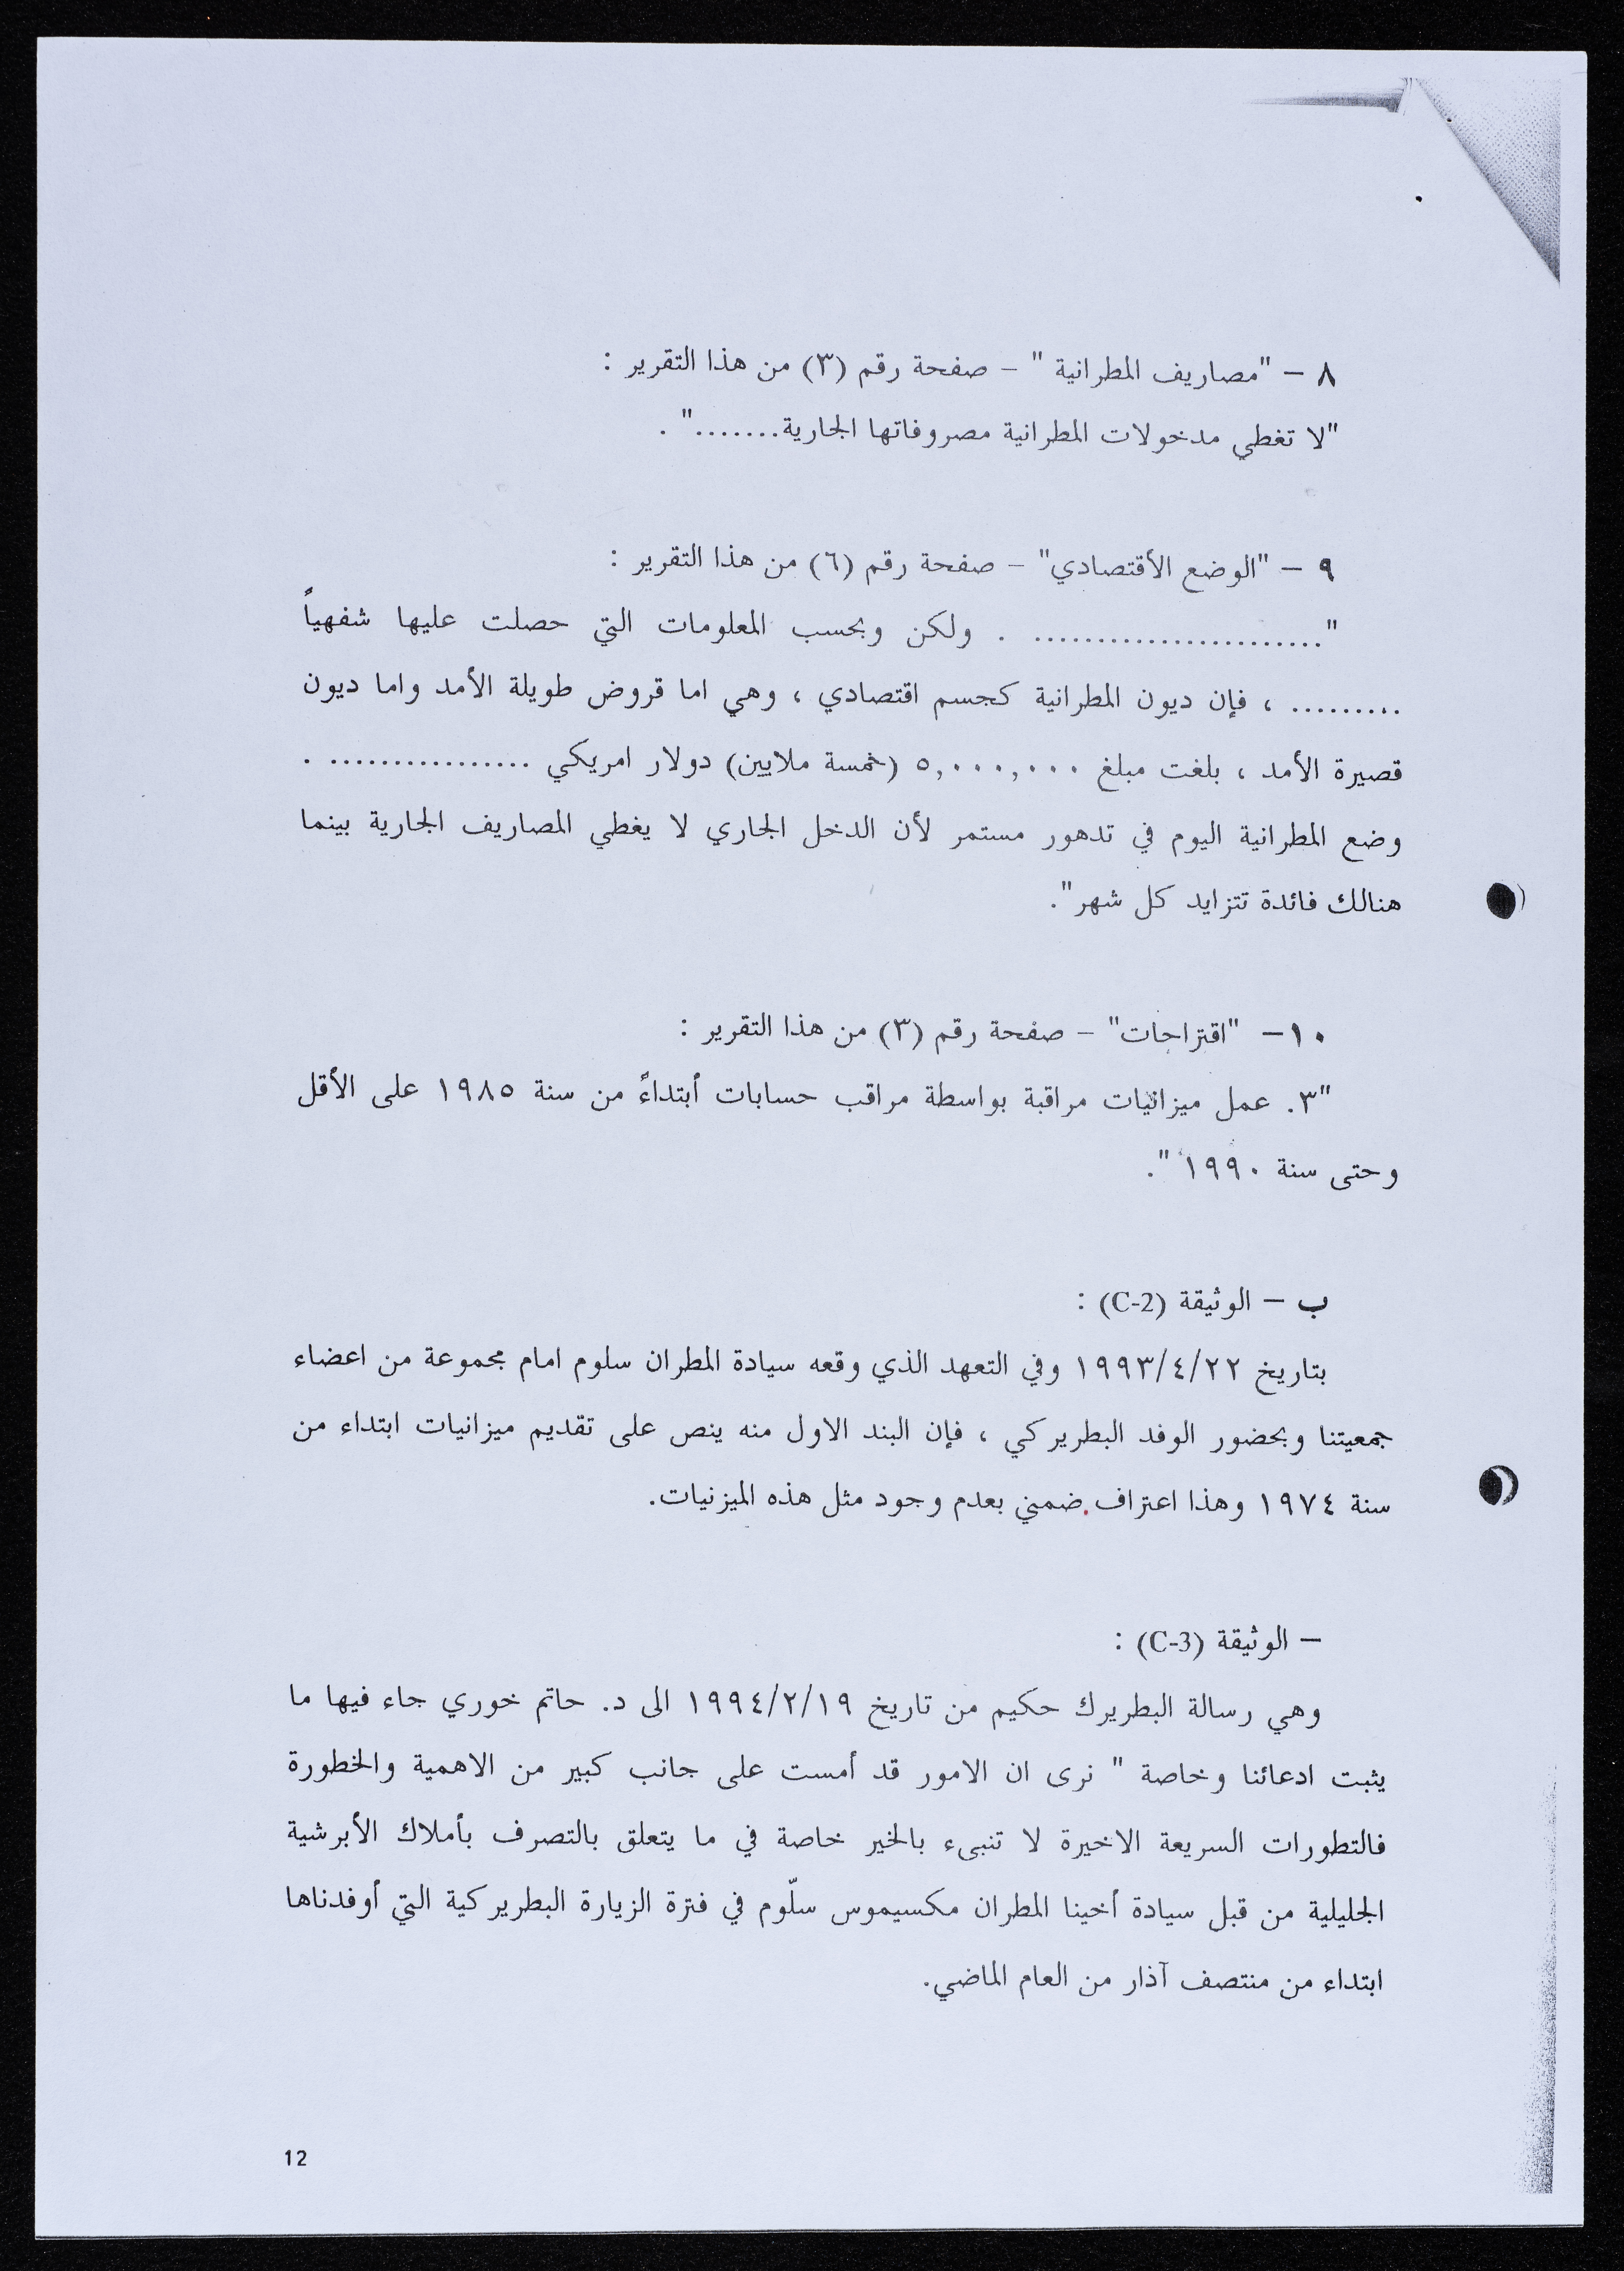 ٨ – "مصاريف المطرانية " – صفحة رقم (٣) من هذا التقرير :
"لا تغطي مدخولات المطرانية مصروفاتها الجارية.......".
٩ – "الوضع الأقتصادي" – صفحة رقم (٦) من هذا التقرير :
"........................ . ولكن وبحسب المعلومات التي حصلت عليها شفهياً
......... ، فإن ديون المطرانية كجسم اقتصادي ، وهي اما قروض طويلة الأمد واما ديون
قصيرة الأمد ، بلغت مبلغ ٥,٠٠٠,٠٠٠ (خمسة ملايين) دولار امريكي ................. .
وضع المطرانية اليوم في تدهور مستمر لأن الدخل الجاري لا يغطي المصاريف الجارية بينما
هنالك فائدة تتزايد كل شهر".
١٠– "اقتراحات" – صفحة رقم (٣) من هذا التقرير :
"٣. عمل ميزانيات مراقبة بواسطة مراقب حسابات أبتداءً من سنة ١٩٨٥ على الأقل
وحتى سنة ١٩٩٠ ".
ب – الوثيقة (C-2) :
بتاريخ ١٩٩٣/٤/٢٢ وفي التعهد الذي وقعه سيادة المطران سلوم امام مجموعة من اعضاء
جمعيتنا وبحضور الوفد البطريركي ، فإن البند الاول منه ينص على تقديم ميزانيات ابتداء من
سنة ١٩٧٤ وهذا اعتراف ضمني بعدم وجود مثل هذه الميزنيات.
– الوثيقة (C-3) :
وهي رسالة البطريرك حكيم من تاريخ ١٩٩٤/٢/١٩ الى د. حاتم خوري جاء فيها ما
يثبت ادعائنا وخاصة " نرى ان الامور قد أمست على جانب كبير من الاهمية والخطورة
فالتطورات السريعة الاخيرة لا تنبىء بالخير خاصة في ما يتعلق بالتصرف بأملاك الأبرشية
الجليلية من قبل سيادة أخينا المطران مكسيموس سلّوم في فترة الزيارة البطريركية التي أوفدناها
ابتداء من منتصف آذار من العام الماضي.
12